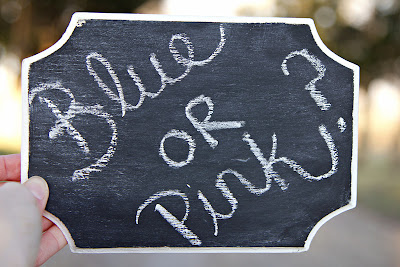 Blue
OR
Pink?